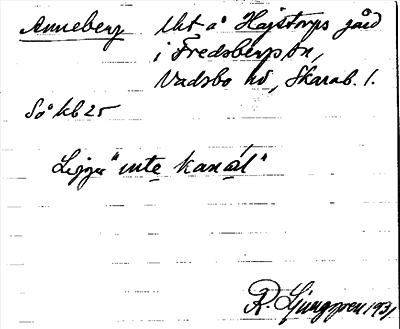 Anneberg Utst å Hajstorps gård
i Fredsbergs sn,
Vadsbo hd, Skarab. l.
Sö kb 25
Ligger "inte kanal"
R. Ljunggren 1931.